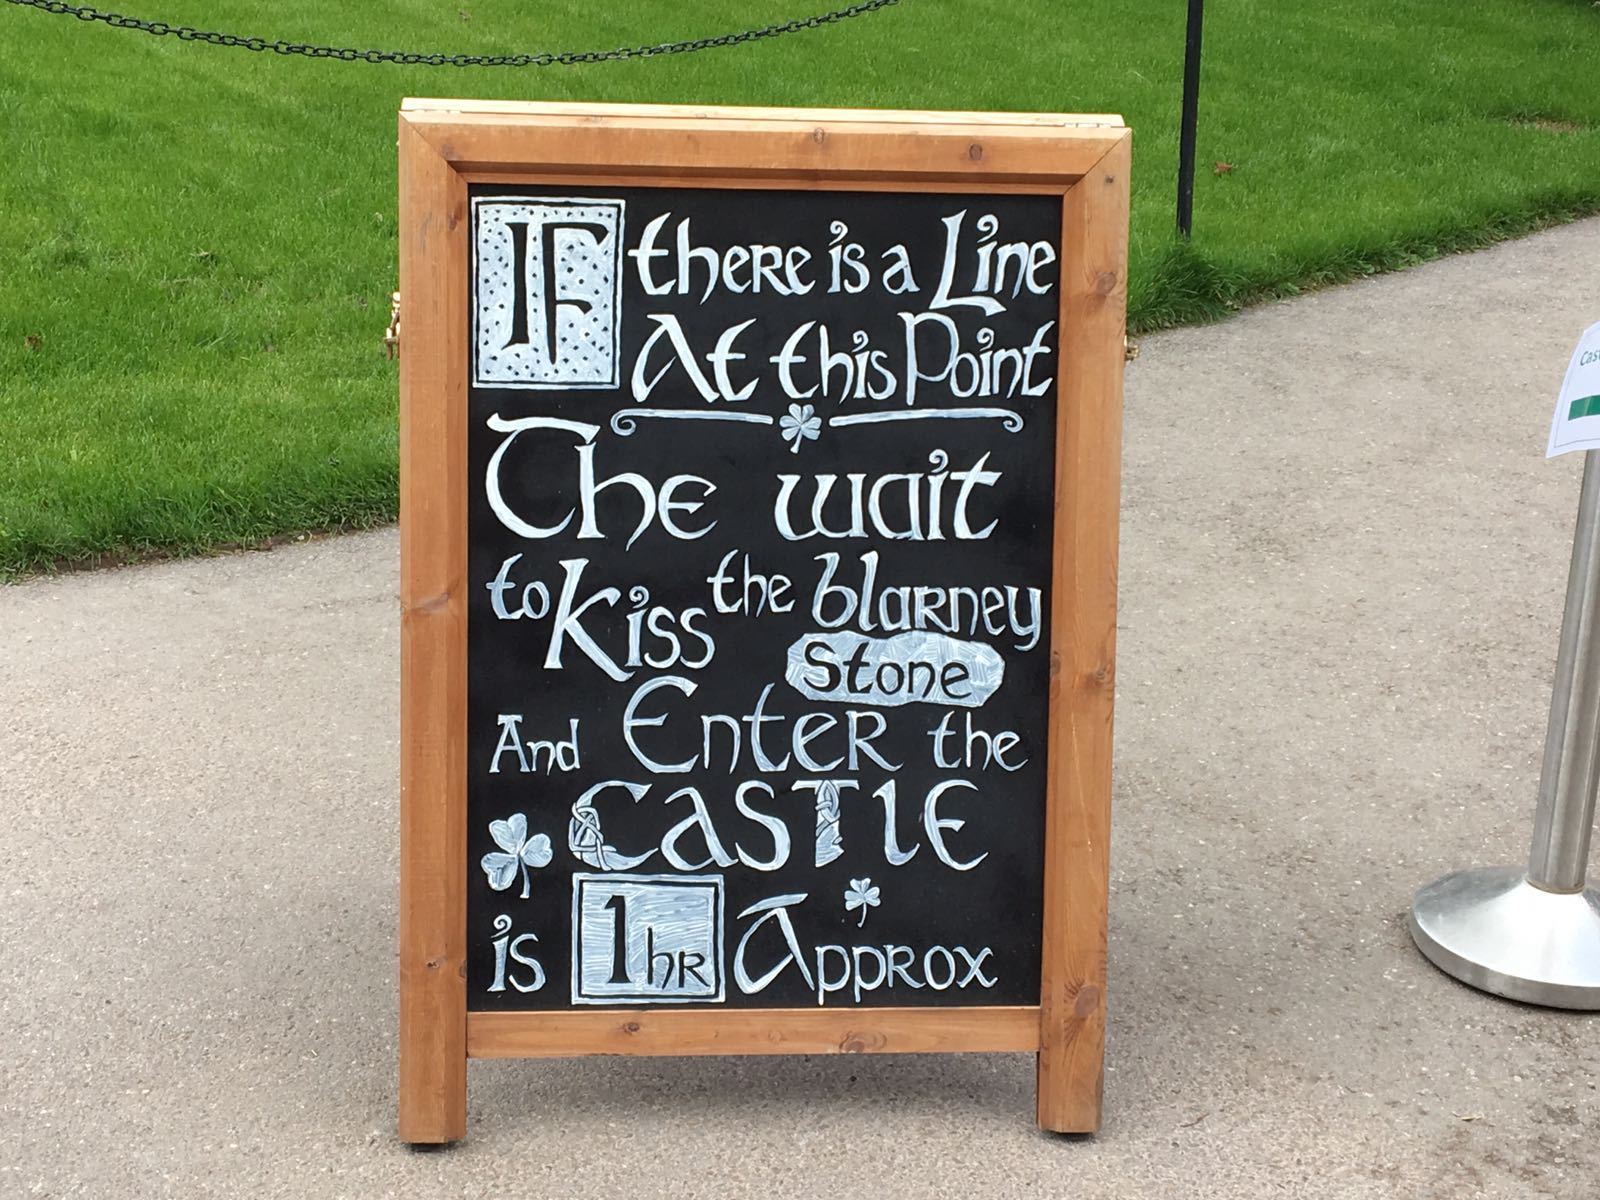 If there is a Line
At this Point
The wait
to Kiss the blarney
Stone
And Enter the
Castle
is 1hr Approx